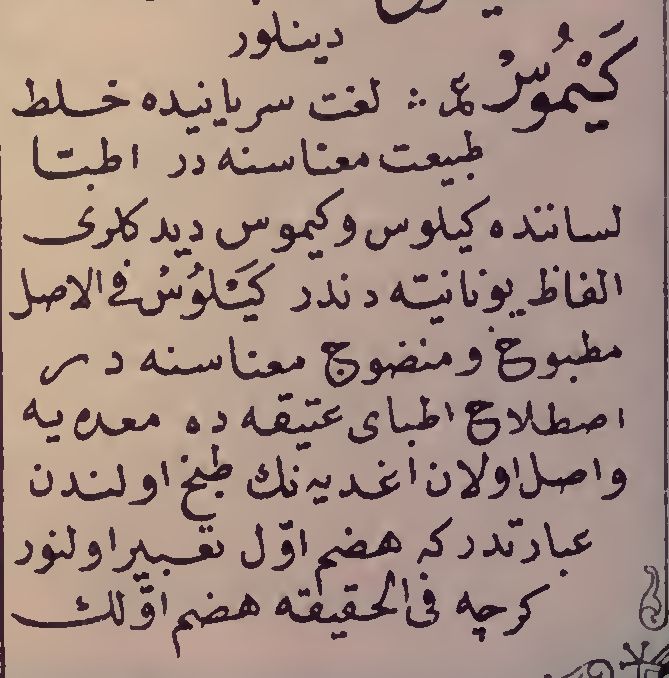 دینلور
كَيْمُوسْ عمـ ؞ لغت سریانیده خلط
طبیعت معناسنه در اطبّا
لساننده كیلوس وكیموس دیدكلری
الفاظ یونانیّه دندر كَيْلُوسْ فی الاصل
مطبوخ ومنضوج معناسنه در
اصطلاح اطبای عتیقه ده معده یه
واصل اولان اغدیه نك طبخ اولندن
عبارتدر كه هضم اوّل تعبیر اولنور
كرچه فی الحقیقه هضم اوّلك